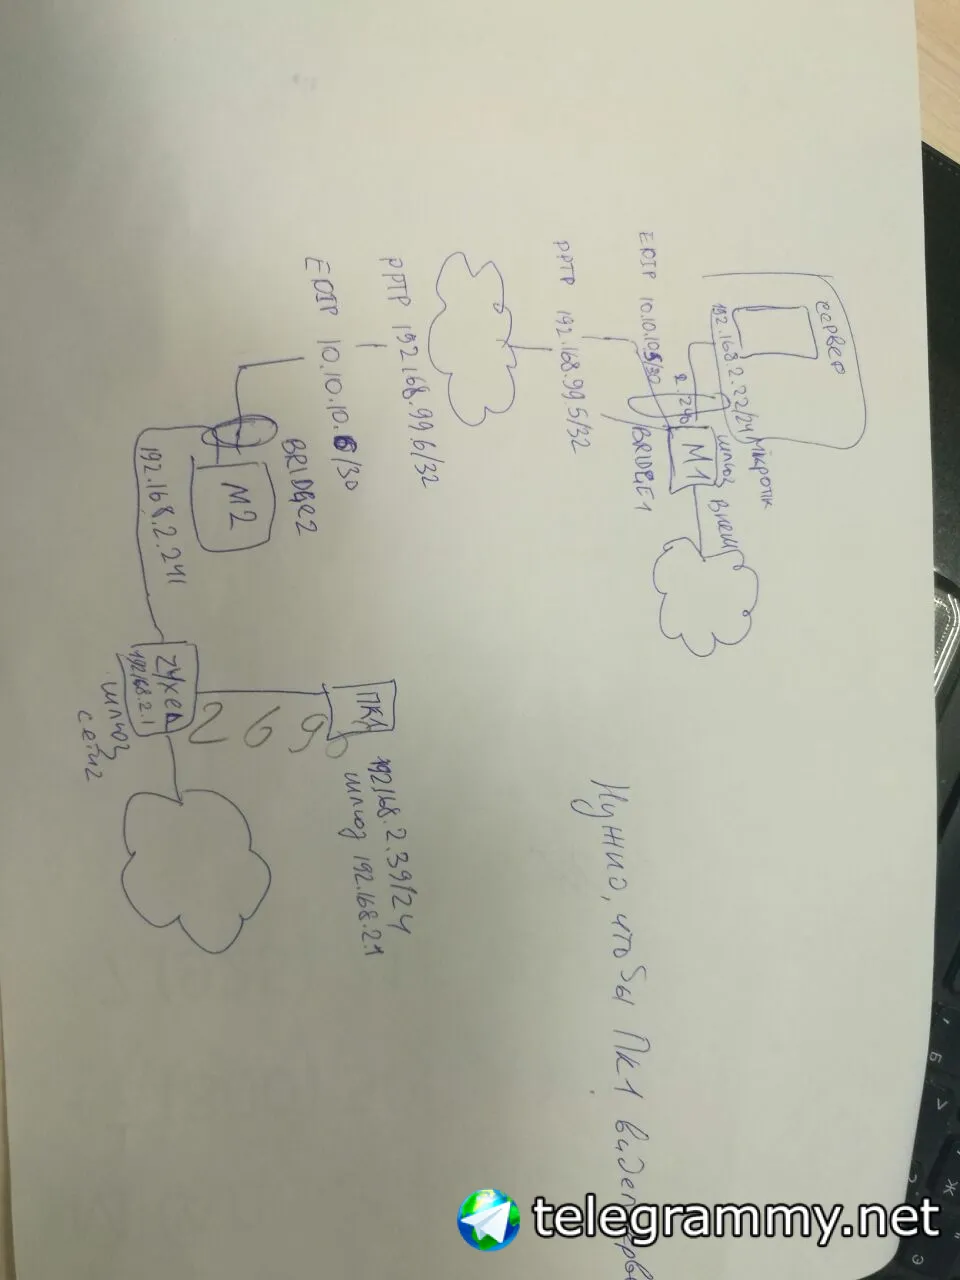 сервер
192.168.2.22/24
Микротік
шлюз
2.240
M1
Внеш
EOIP 10.10.10.5/30
BRIDGE1
PPTP 192.168.99.5/32
PPTP 192.168.99.6/32
EOIP 10.10.10.6/30
BRIDGE2
M2
192.168.2.241
ZYXEL
192.168.2.1
шлюз
сети2
ПК1
192.168.2.39/24
шлюз 192.168.2.1
2 6 9
Нужно, что бы ПК1 видел
telegrammy.net